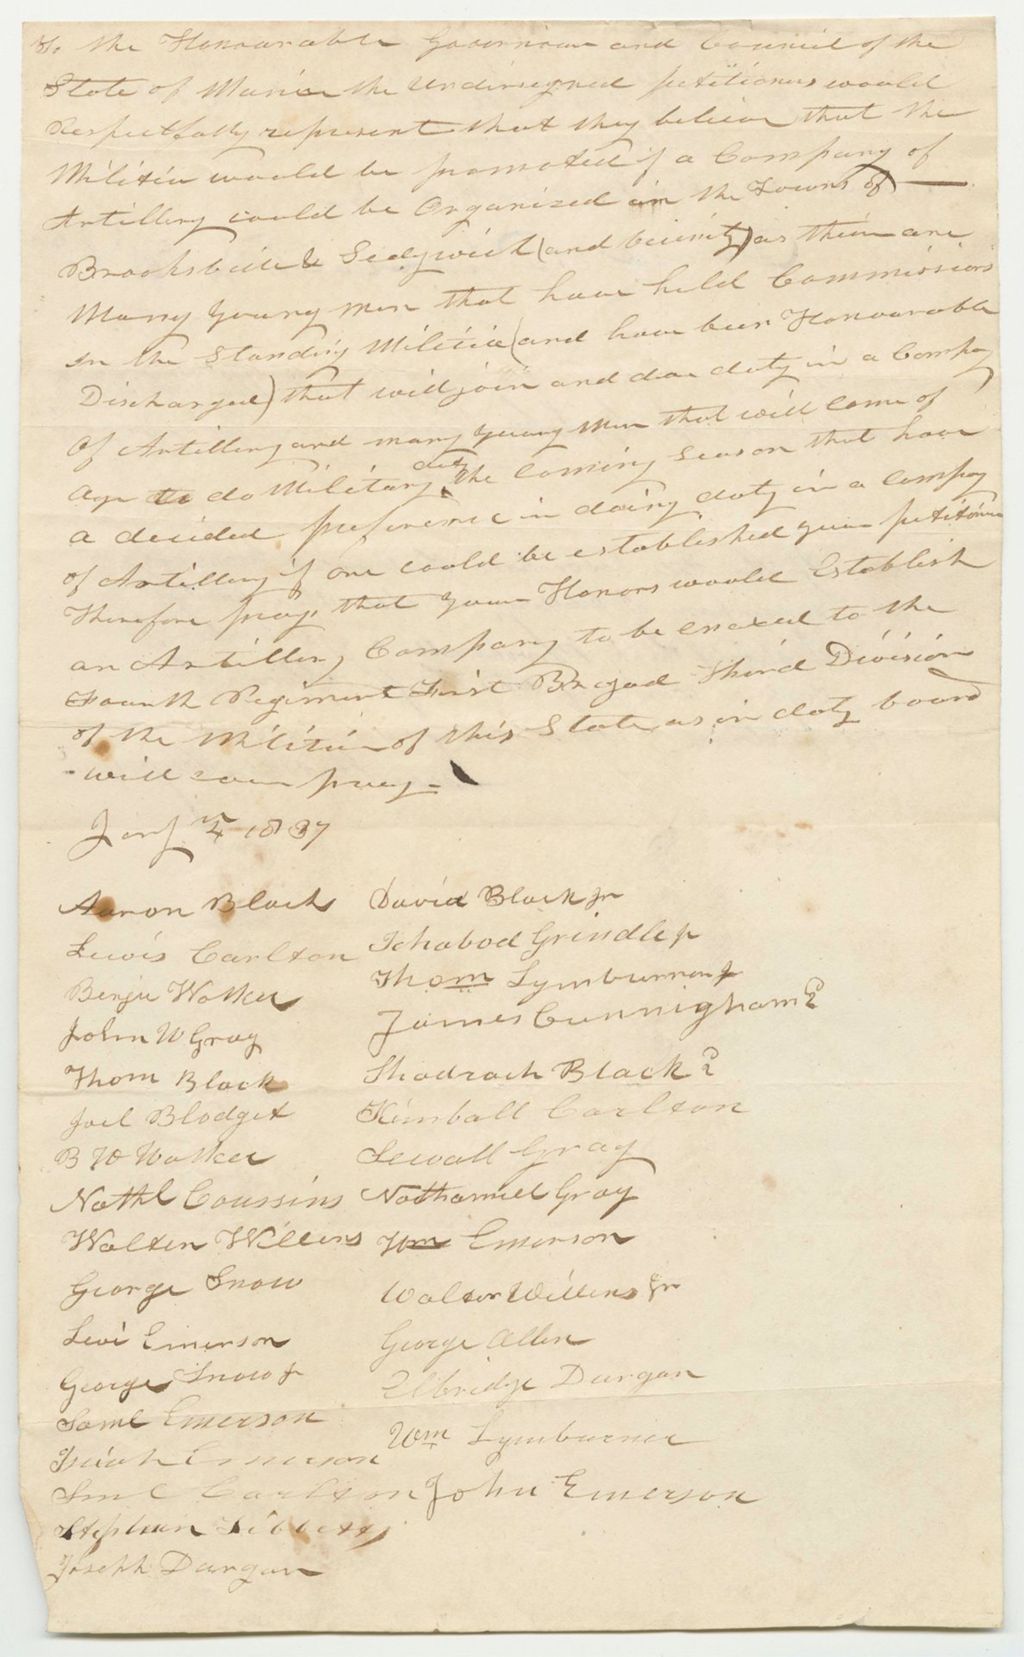 To the Honourable Governour and Council of the
State of Maine the Undersigned petitioners would
Respectfully represent that they believe that the
Militia would be promoted if a Company of
Artillery could be Organized in the Towns of
Brooksville & Sedgwick (and vicinity) as their are
Many Young men that have held Commissions
in the Standing Militia (and have been Honourable
Discharged) that will join and doe duty in a Compay
of Artillery and many young Men that will come of
age to do Military duty the coming Season that have
a decided preference in doing duty in a compay
of Artillery if one could be established your petitioners
Therefore pray that your Honors would Establish
an Artillery Company to be enexed to the
Fourth Regiment First Brigad Third Division
of the Militia of this State as in duty bound
will ever pray
Jany 4 1837
Aaron Black David Black Jr
Lewis Carlton Ichabod Grindle Jr
Benja Walker Thom Lymburner Jr
John W Gray James Cunnigham 2
Thom Black Shadrach Black 2
Joel Blodget Kimball Carlton
B W Walker Sewall Gray
Nathl Coussins Nathaniel Gray
Walter Willens Wm Emerson
George Snow Walter Willens Jr
Levi Emerson George Allen
George Snow Jr Elbridge Durgan
Saml Emerson Wm Lymburner
Isiah Emerson
Saml Carlton John Emerson
Stephen Tibbetts
Joseph Durgan